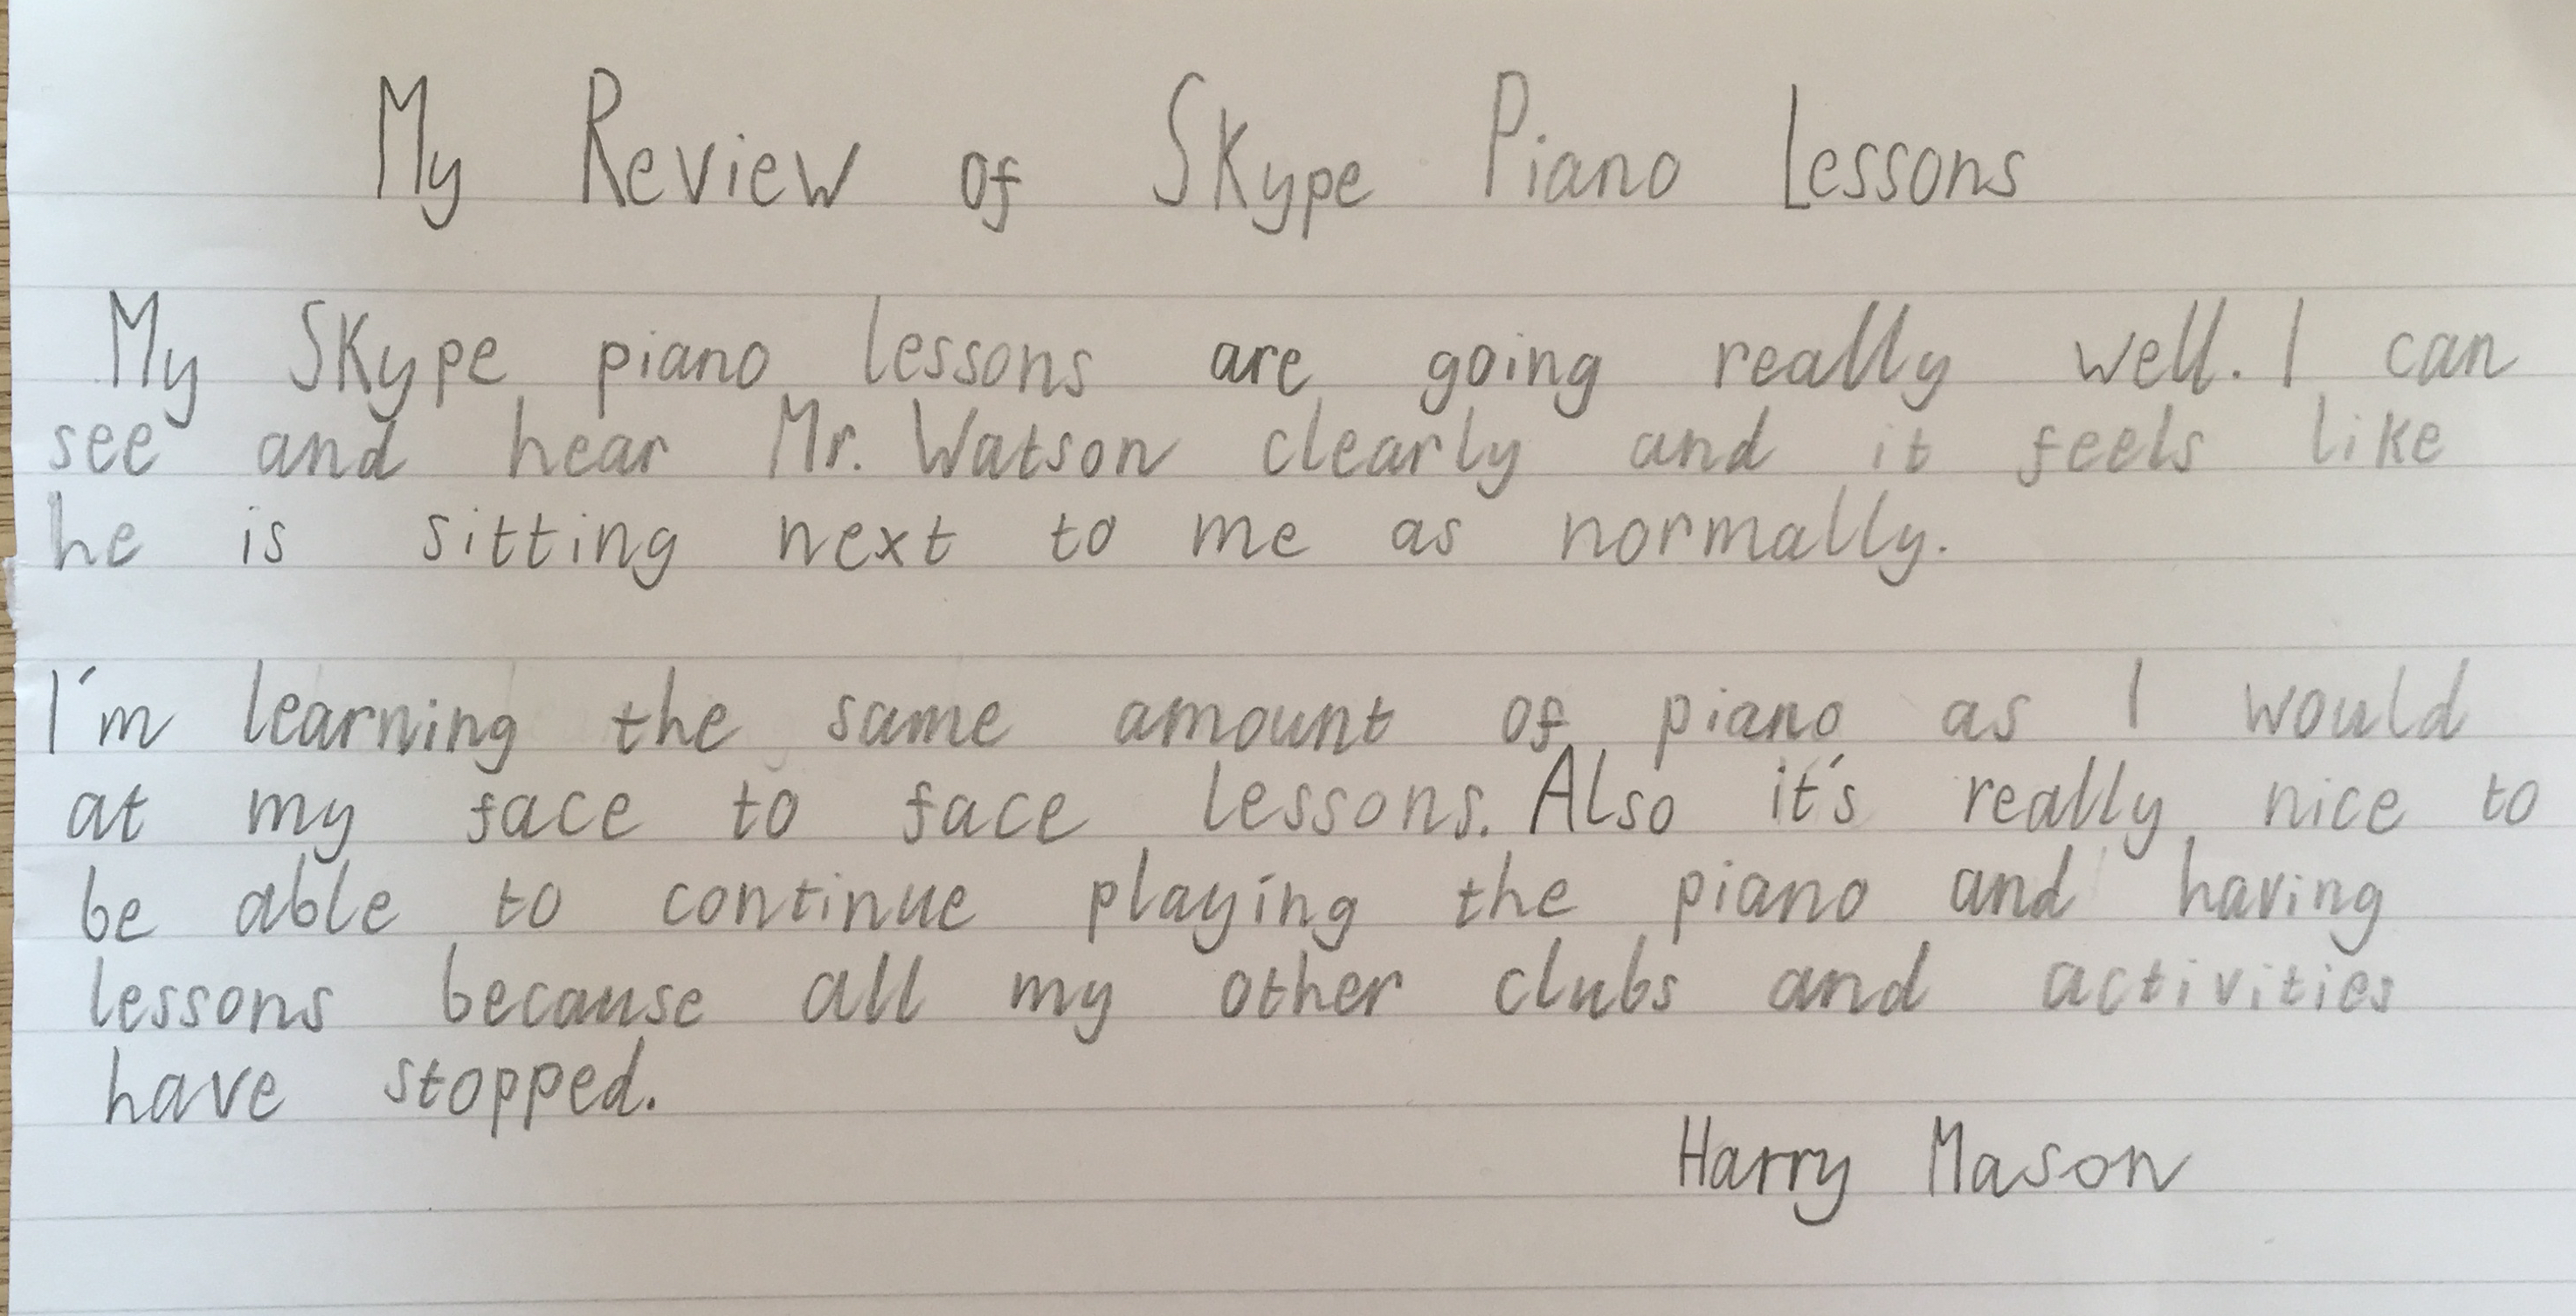 My Review of Skype Piano Lessons
My Skype piano lessons are going really well. I can
see and hear Mr. Watson clearly and it feels like
he is sitting next to me as normally.
I'm learning the same amount of piano as I would
at my face to face lessons. Also it's really nice to
be able to continue playing the piano and having
lessons because all my other clubs and activities
have stopped.
Harry Mason